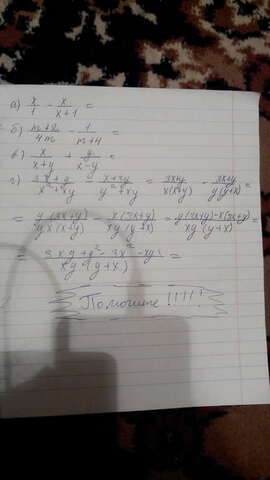 а) x/1 - x/x+1 =
б) m+2/4m - 1/m+4 =
в) x/x+y + y/x-y =
г) 3x+y/x²+xy - x+3y/y²+xy = 3x+y/x(x+y) - 3x+y/y(y+x) =
= y(3x+y)/yx(x+y) - x(3x+y)/xy(y+x) = y(3x+y)-x(3x+y)/xy(y+x) =
= 3xy+y²-3x²-xy/xy(y+x) =
Помогите !!!!!